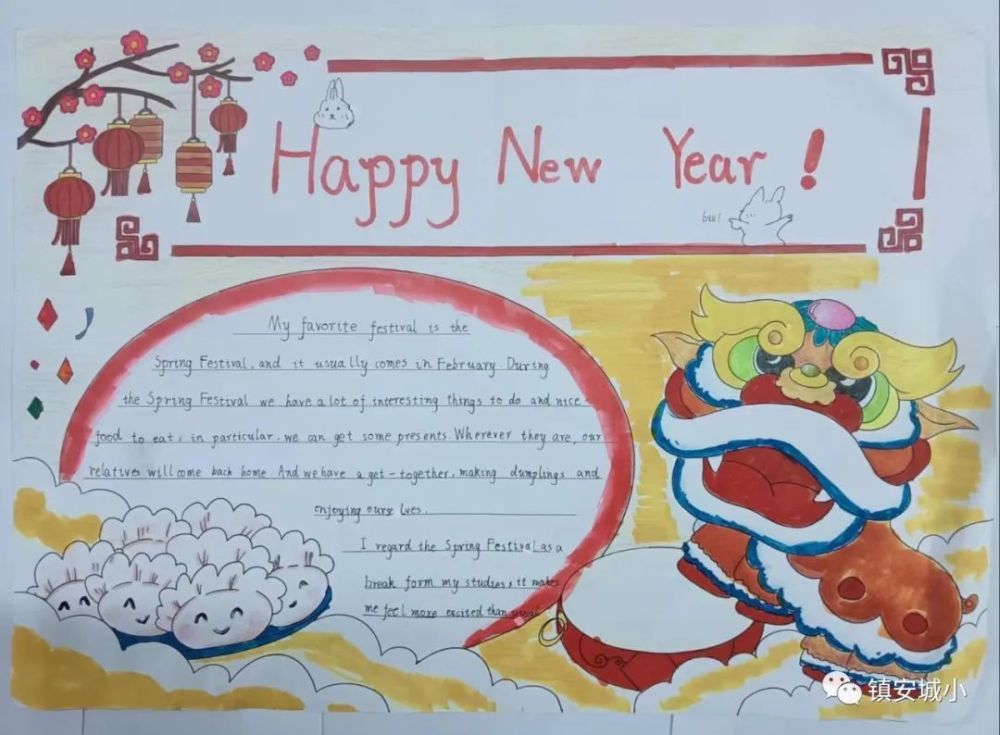 Happy New Year !
buu!
My favorite festival is the
Spring Festival, and it usually comes in February. During
the Spring Festival we have a lot of interesting things to do and nice
food to eat, in particular, we can get some presents. Wherever they are, our
relatives will come back home. And we have a get-together, making dumplings and
enjoying ourselves.
I regard the Spring Festival as a
break form my studies, it makes
me feel more excited than usual
镇安城小